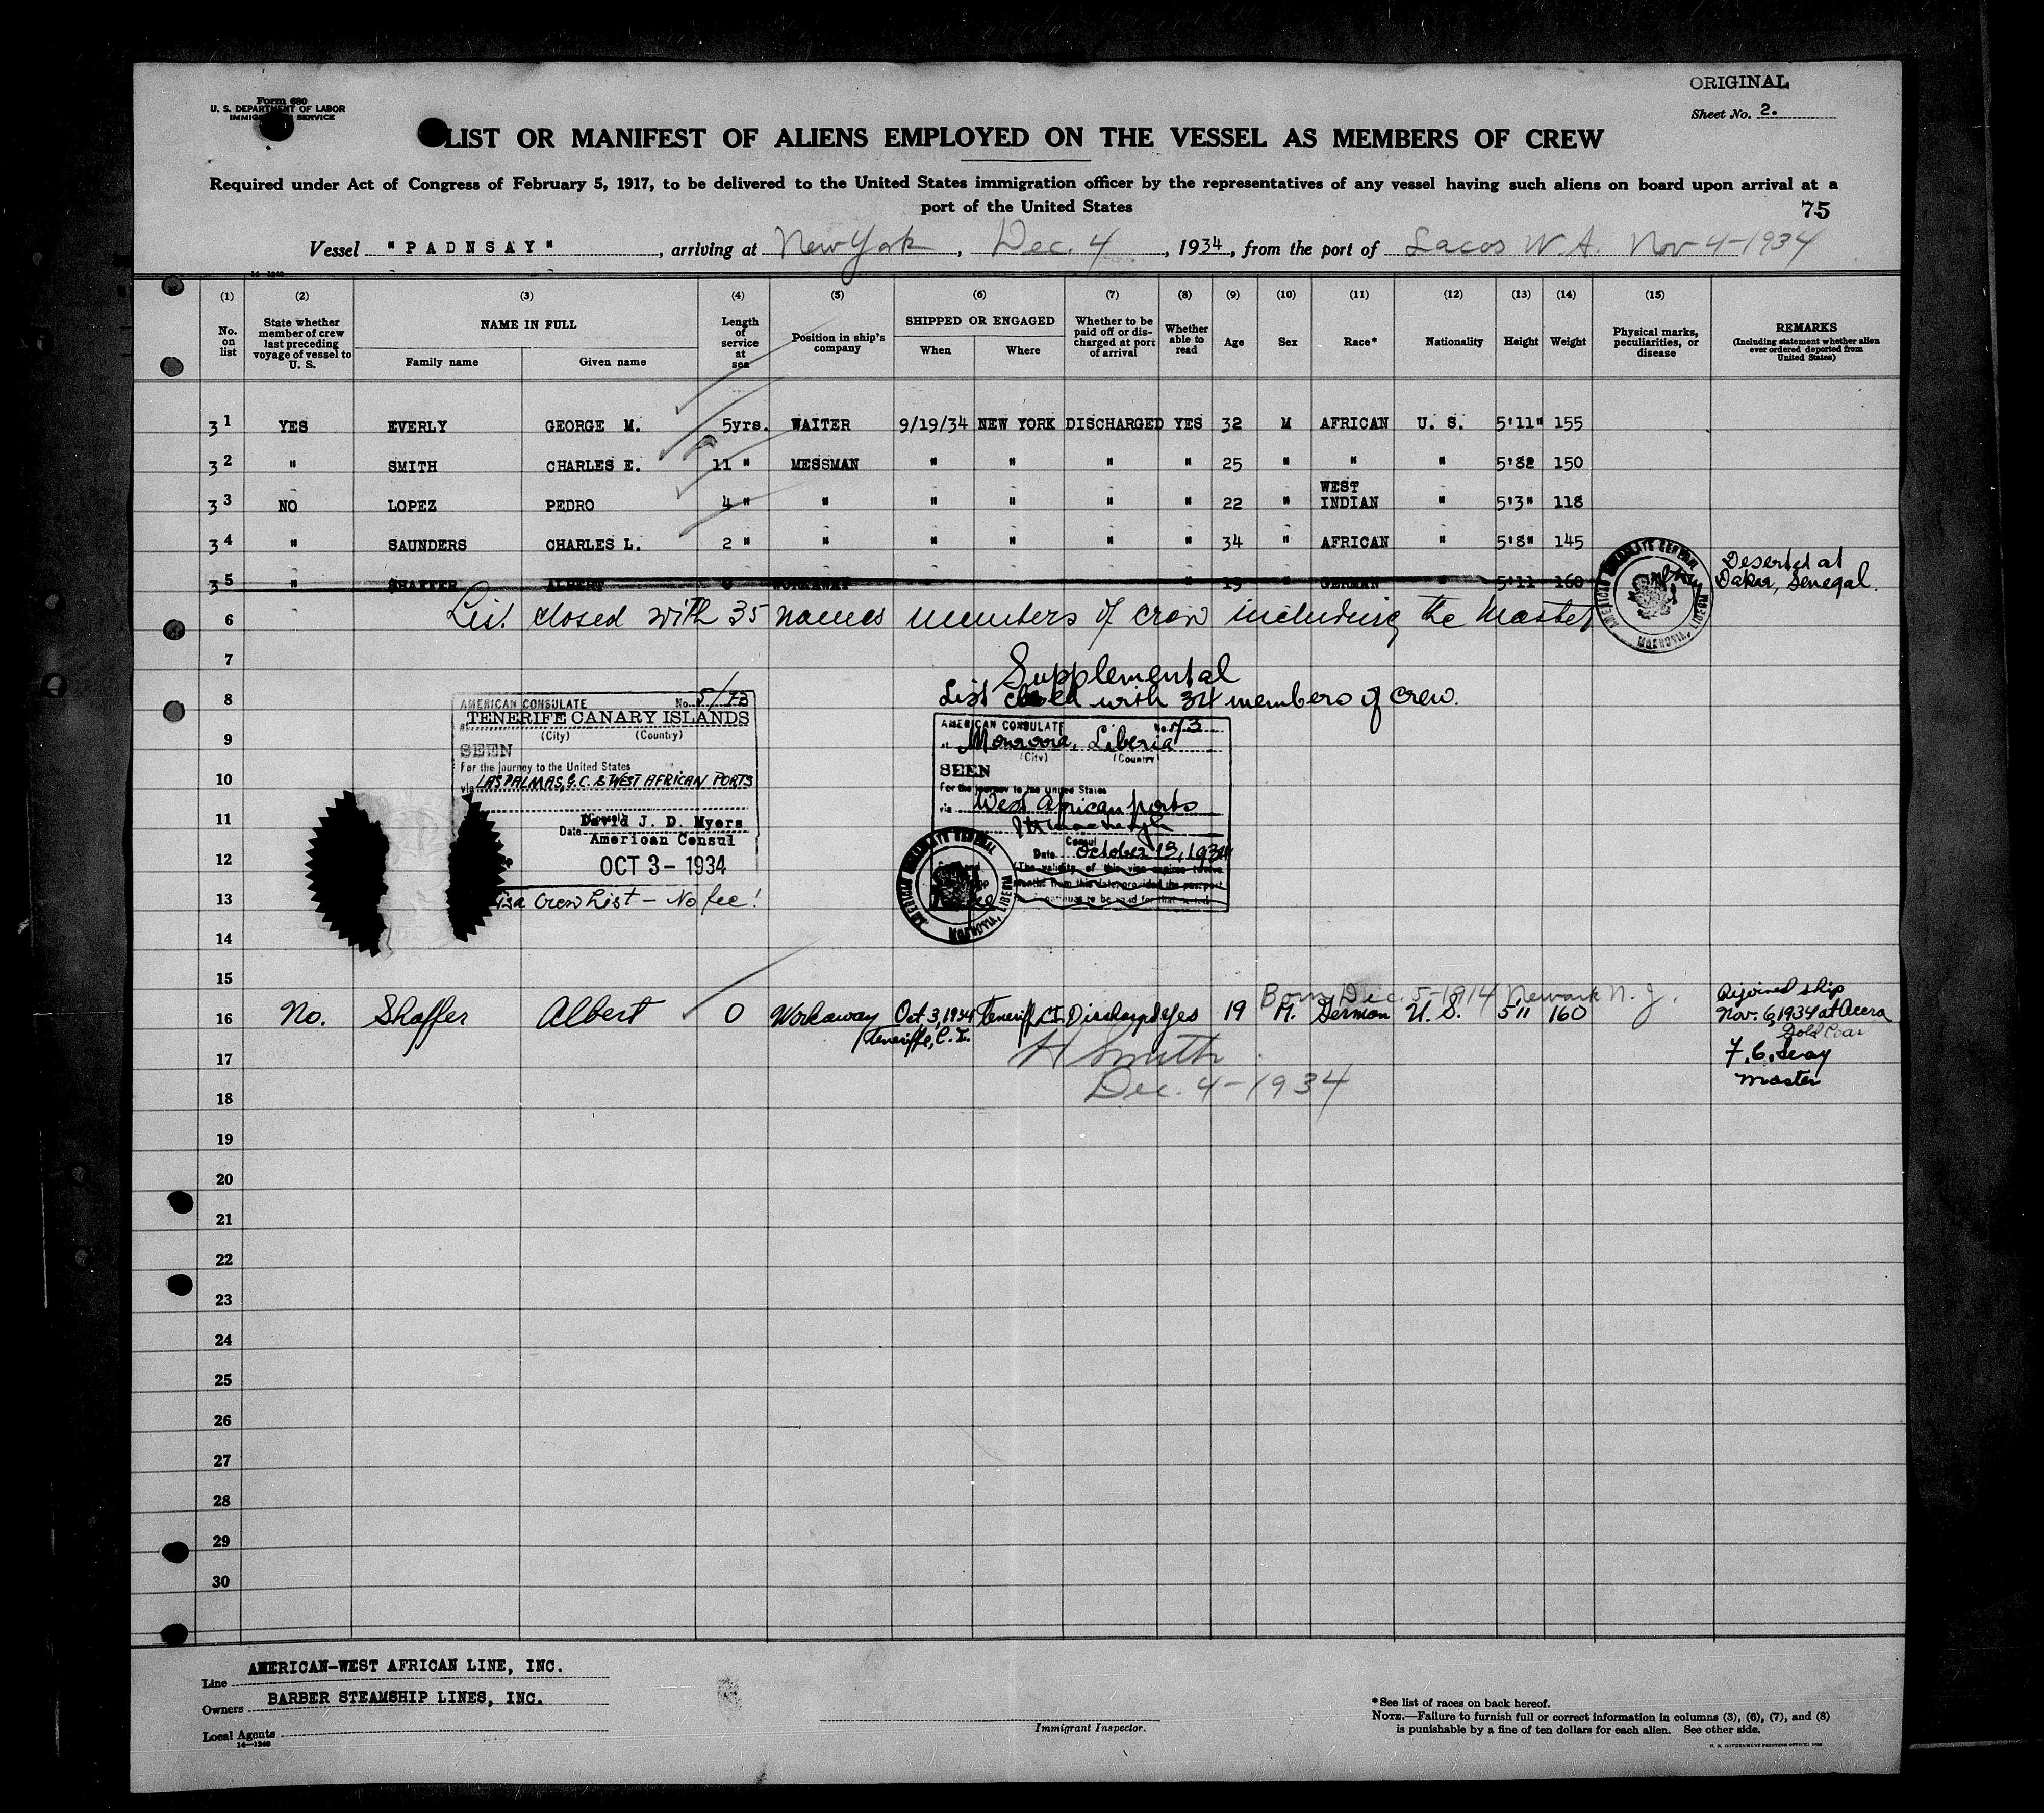 ORIGINAL
Form 680
U. S. DEPARTMENT OF LABOR
SERVICE
Sheet No. 2.
LIST OR MANIFEST OF ALIENS EMPLOYED ON THE VESSEL AS MEMBERS OF CREW
Required under Act of Congress of February 5, 1917, to be delivered to the United States immigration officer by the representatives of any vessel having such aliens on board upon arrival at a
port of the United States
75
Vessel "PADNSAY", arriving at New York, Dec. 4, 1934, from the port of Lacos W.A. Nov 4-1934
(1) (2) (3) (4) (5) (6) (7) (8) (9) (10) (11) (12) (13) (14) (15)
No. on list State whether member of crew last preceding voyage of vessel to U. S. NAME IN FULL Family name Given name Length of service at sea Position in ship's company SHIPPED OR ENGAGED When Where Whether to be paid off or discharged at port of arrival Whether able to read Age Sex Race* Nationality Height Weight Physical marks, peculiarities, or disease REMARKS (Including statement whether alien ever ordered deported from United States)
31 YES EVERLY GEORGE M. 5yrs. WAITER 9/19/34 NEW YORK DISCHARGED YES 32 M AFRICAN U. S. 5'11" 155
32 " SMITH CHARLES E. 11 " MESSMAN " " " " 25 " " " 5'8" 150
33 NO LOPEZ PEDRO 4 " " " " " " 22 " WEST INDIAN " 5'3" 118
34 " SAUNDERS CHARLES L. 2 " " " " " " 34 " AFRICAN " 5'8" 145
35 " SHAFFER ALBERT 0 WORKAWAY " 19 " GERMAN " 5'11 160 Deserted at Dakar, Senegal.
6 List closed with 35 names members of crew including the Master
AMERICAN CONSULATE GENERAL
MONROVIA, LIBERIA
7 Supplemental
8 List closed with 34 members of crew.
AMERICAN CONSULATE No. 5/73
at TENERIFE CANARY ISLANDS
(City) (Country)
SEEN
For the journey to the United States
via LAS PALMAS, G.C. & WEST AFRICAN PORTS
David J. D. Myers
Date American Consul
OCT 3 - 1934
Visa Crew List - No fee!
AMERICAN CONSULATE No. 73
at Monrovia, Liberia
(City) (Country)
SEEN
For the journey to the United States
via West African ports
Consul
Date October 13, 1934
(The validity of this visa expires twelve
months from this date, provided the passport
continues to be valid for that period
AMERICAN CONSULATE GENERAL
MONROVIA, LIBERIA
9
10
11
12
13
14
15
Born Dec. 5-1914 Newark N. J.
16 No. Shaffer Albert 0 Workaway Oct 3, 1934 Teneriffe, C.I. Teneriff C.I. Discharged yes 19 M. German U. S. 5'11 160 Rejoined ship Nov. 6, 1934 at Accra Gold Coas
F. C. Seay
master
17 H Smith
Dec. 4-1934
18
19
20
21
22
23
24
25
26
27
28
29
30
Line AMERICAN-WEST AFRICAN LINE, INC.
Owners BARBER STEAMSHIP LINES, INC.
Local Agents
14—1240
Immigrant Inspector.
*See list of races on back hereof.
NOTE.—Failure to furnish full or correct information in columns (3), (6), (7), and (8)
is punishable by a fine of ten dollars for each alien. See other side.
U. S. GOVERNMENT PRINTING OFFICE: